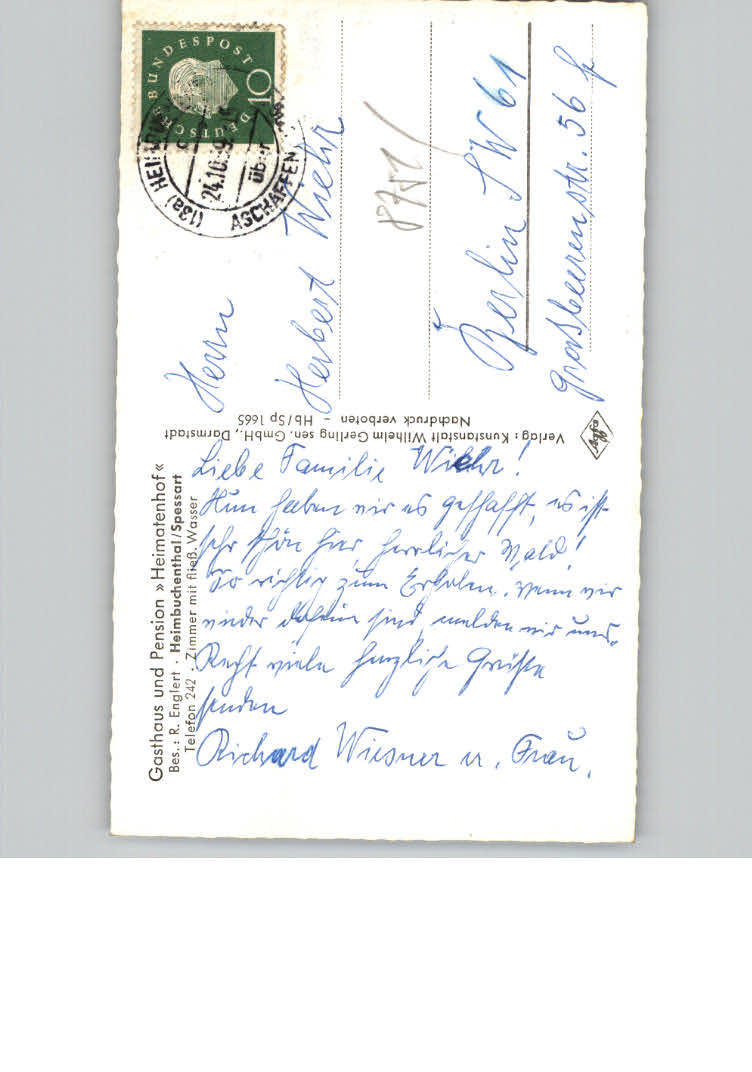 Gasthaus und Pension »Heimatenhof«
Bes.: R. Englert · Heimbuchenthal/Spessart
Telefon 242 · Zimmer mit fließ. Wasser
Liebe Familie Wiehr!
Nun haben wir es geschafft, es ist
sehr schön hier herrlicher Wald!
So richtig zum Erholen. Wenn wir
wieder daheim sind, melden wir uns.
Recht viele herzliche Grüße
senden
Richard Wiesner u. Frau.
Verlag: Kunstanstalt Wilhelm Gerling sen. GmbH., Darmstadt
Nachdruck verboten - Hb/Sp 1665
Agfa
DEUTSCHE BUNDESPOST
10
(13a) HEIMBU
24.10.59
über
ASCHAFFEN
8751
Herrn
Herbert Wiehr
Berlin SW 61
Großbeerenstr. 56 f